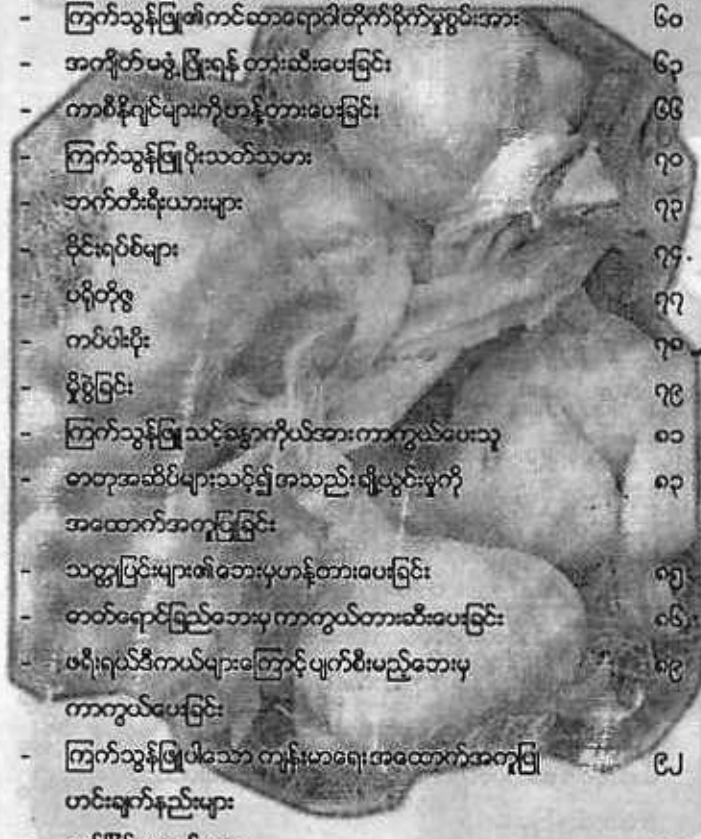 - ကြက်သွန်ဖြူ၏ကင်ဆာရောဂါတိုက်ခိုက်မှုစွမ်းအား ၆၀
- အကျိတ်မဖွံ့ဖြိုးရန် တားဆီးပေးခြင်း ၆၃
- ကာစီနိုဂျင်များကိုဟန့်တားပေးခြင်း ၆၆
- ကြက်သွန်ဖြူပိုးသတ်သမား ၇၀
- ဘက်တီးရီးယားများ ၇၃
- ဗိုင်းရပ်စ်များ ၇၄
- ပရိုတိုဇွ ၇၇
- ကပ်ပါးပိုး ၇၈
- မှိုစွဲခြင်း ၇၉
- ကြက်သွန်ဖြူသင့်ခန္ဓာကိုယ်အားကာကွယ်ပေးသူ ၈၁
- ဓာတုအဆိပ်များသင့်၍အသည်းချို့ယွင်းမှုကို ၈၃
အထောက်အကူပြုခြင်း
- သတ္တုပြင်းများ၏ဘေးမှဟန့်တားပေးခြင်း ၈၅
- ဓာတ်ရောင်ခြည်ဘေးမှကာကွယ်တားဆီးပေးခြင်း ၈၆
- ဖရီးရယ်ဒီကယ်များကြောင့်ပျက်စီးမည့်ဘေးမှ ၈၉
ကာကွယ်ပေးခြင်း
- ကြက်သွန်ဖြူပါသော ကျန်းမာရေးအထောက်အကူပြု ၉၂
ဟင်းချက်နည်းများ